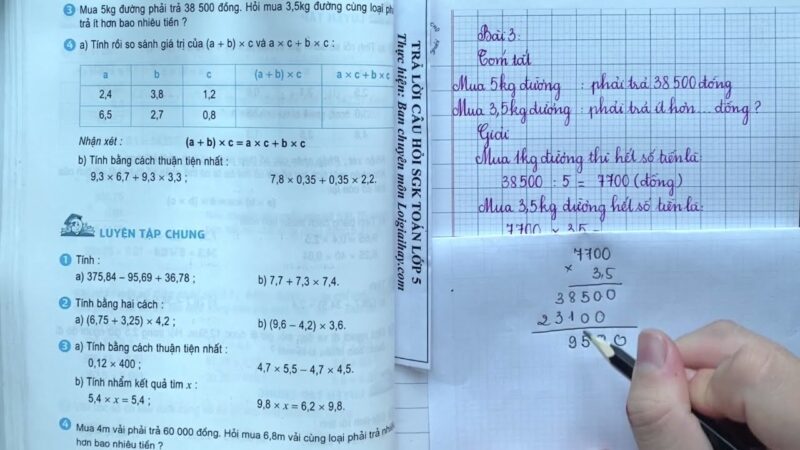 3 Mua 5kg đường phải trả 38 500 đồng. Hỏi mua 3,5kg đường cùng loại ph
trả ít hơn bao nhiêu tiền ?
4 a) Tính rồi so sánh giá trị của (a + b) × c và a × c + b × c :
a b c (a + b) × c a × c + b × c
2,4 3,8 1,2
6,5 2,7 0,8
Nhận xét : (a + b) × c = a × c + b × c
b) Tính bằng cách thuận tiện nhất :
9,3 × 6,7 + 9,3 × 3,3 ; 7,8 × 0,35 + 0,35 × 2,2.
LUYỆN TẬP CHUNG
1 Tính :
a) 375,84 – 95,69 + 36,78 ; b) 7,7 + 7,3 × 7,4.
2 Tính bằng hai cách :
a) (6,75 + 3,25) × 4,2 ; b) (9,6 – 4,2) × 3,6.
3 a) Tính bằng cách thuận tiện nhất :
0,12 × 400 ; 4,7 × 5,5 – 4,7 × 4,5.
b) Tính nhẩm kết quả tìm x :
5,4 × x = 5,4 ; 9,8 × x = 6,2 × 9,8.
4 Mua 4m vải phải trả 60 000 đồng. Hỏi mua 6,8m vải cùng loại phải trả nhi
hơn bao nhiêu tiền ?
TRẢ LỜI CÂU HỎI SGK TOÁN LỚP 5
Thực hiện: Ban chuyên môn Loigiaihay.com
Bài 3:
Tóm tắt
Mua 5kg đường : phải trả 38 500 đồng
Mua 3,5kg đường : phải trả ít hơn ... đồng ?
Giải
Mua 1kg đường thì hết số tiền là:
38500 : 5 = 7700 (đồng)
Mua 3,5kg đường hết số tiền là:
7700 × 3,5 =
7700
× 3,5
38500
23100
95 0